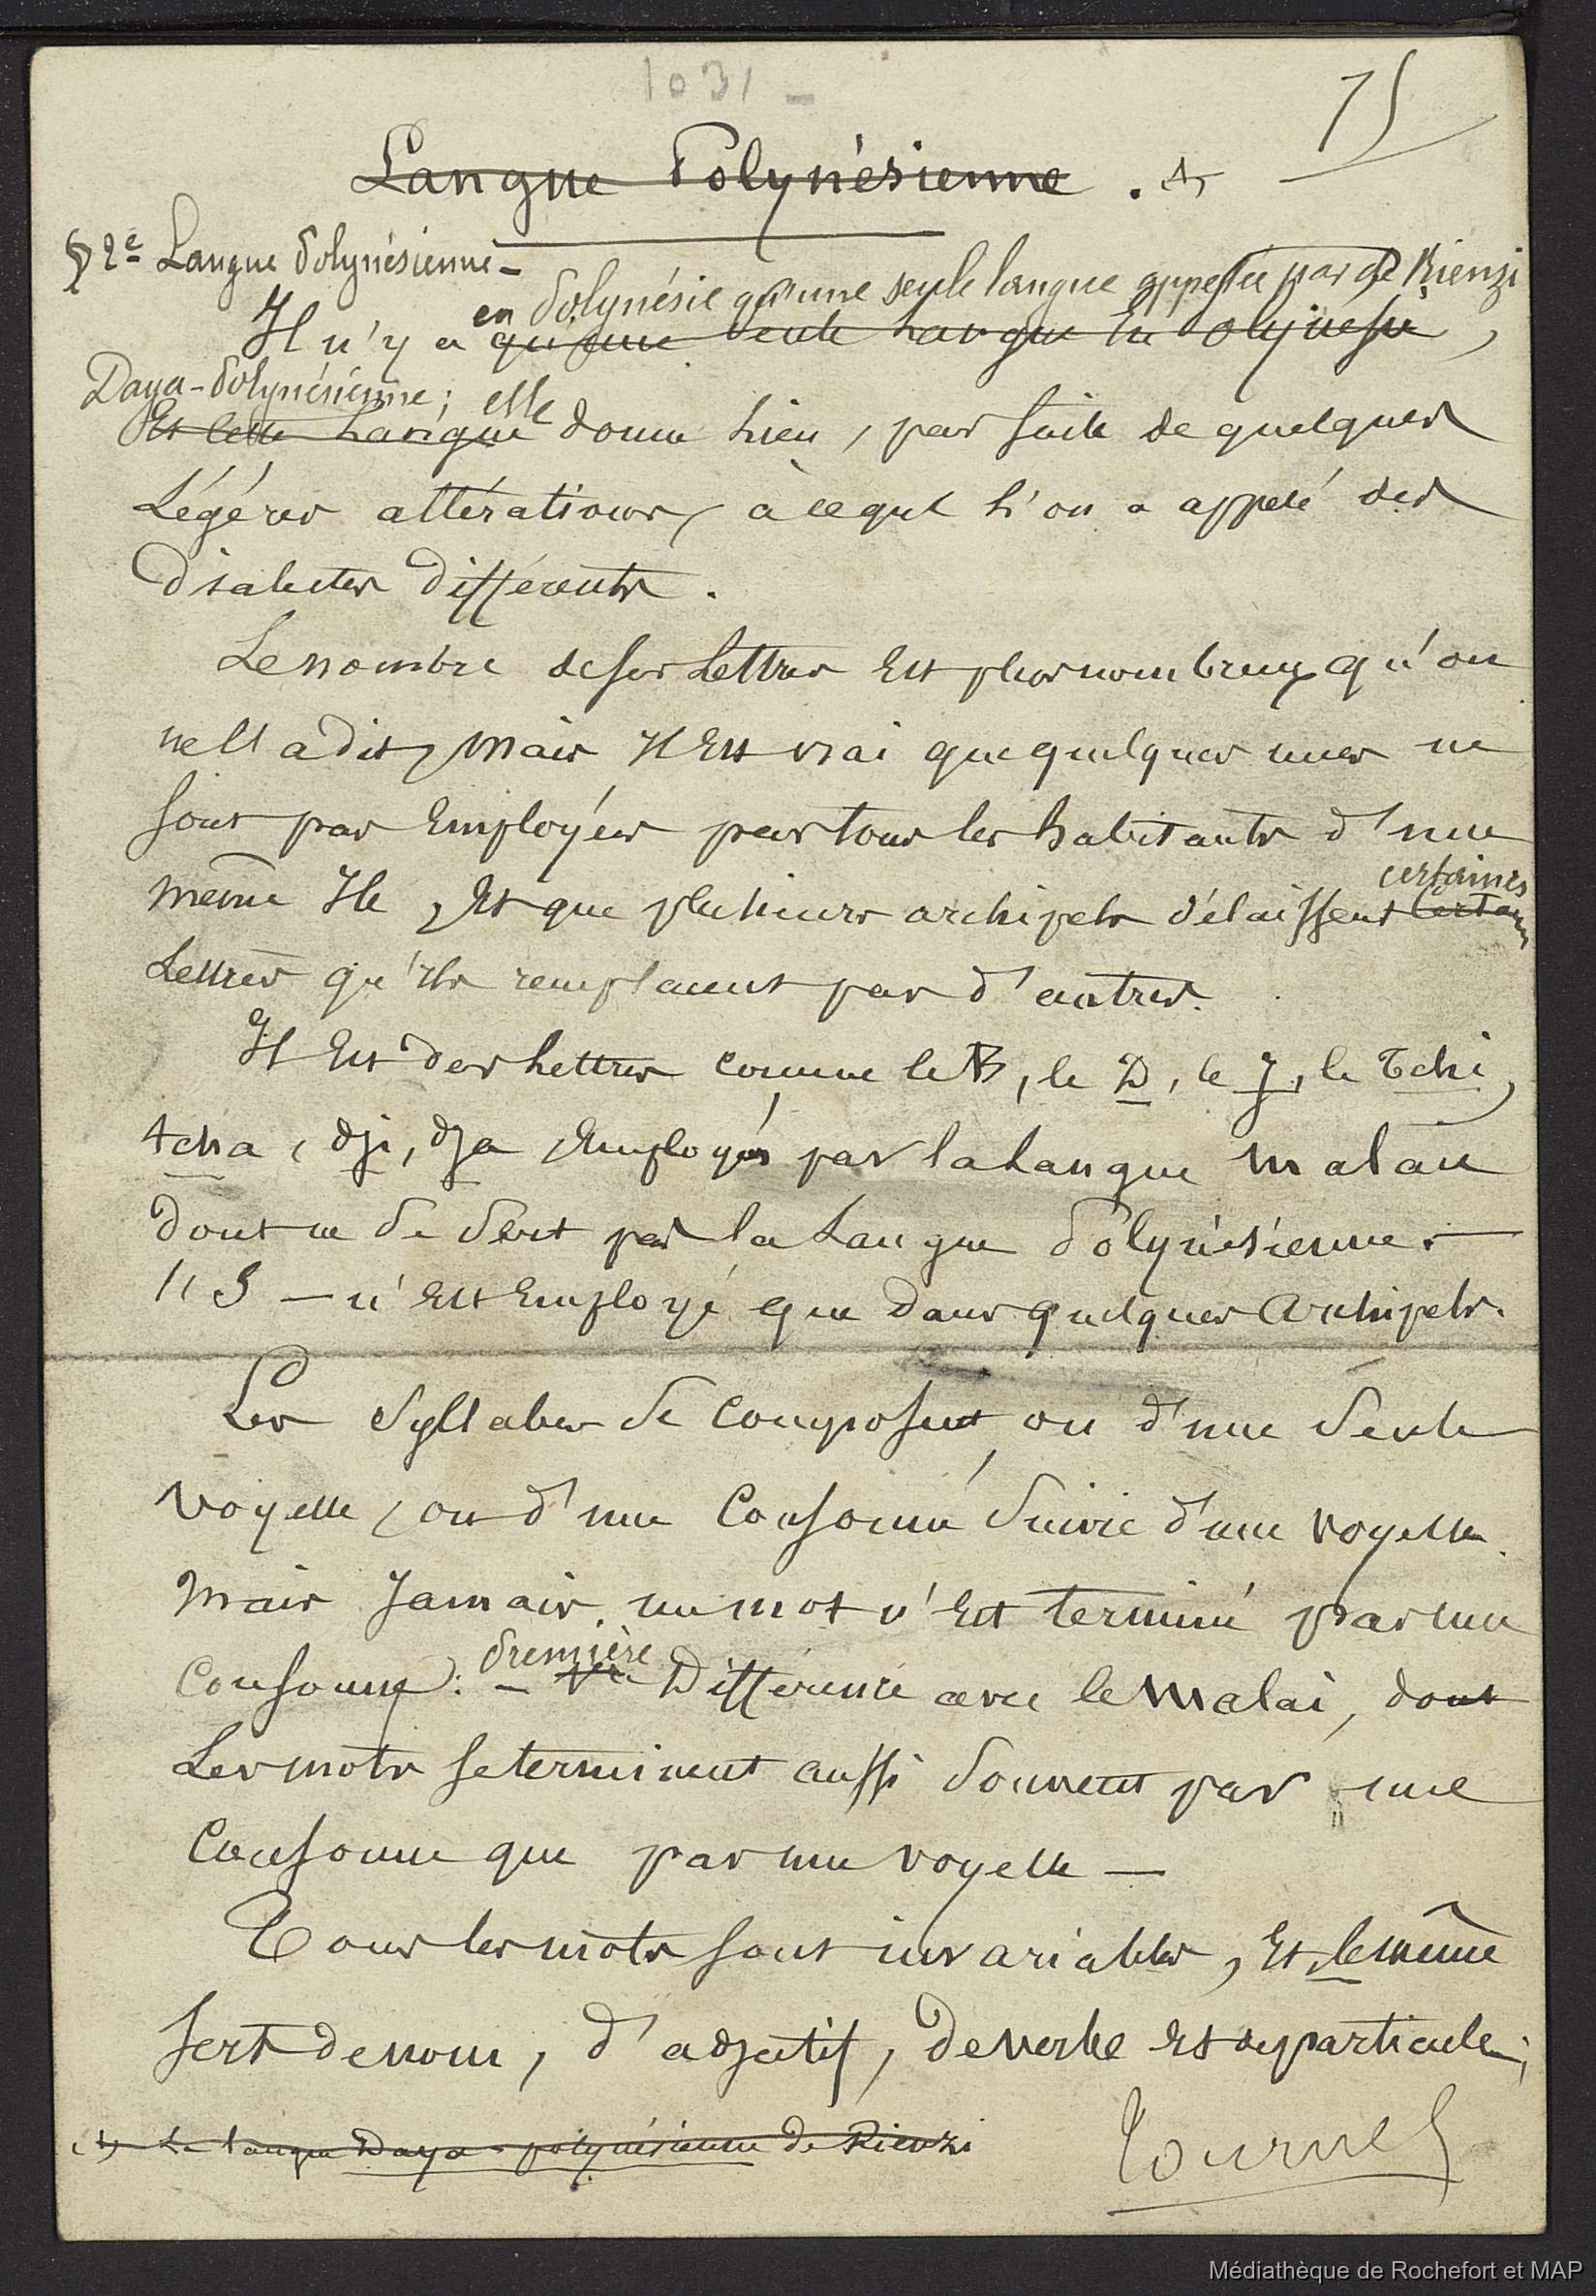 1031 -
75
Langue Polynésienne . (1)
§ 2e Langue Polynésienne -
en Polynésie qu'une seule langue appelée par de Rienzi
Il n'y a qu'une seule Langue En Polynésie,
Daya-Polynésienne; elle
Et cette Langue donne lieu, par suite de quelques
Légères altérations, à ce que l'on a appelé des
Dialectes Différents.
Le nombre de ses Lettres Est plus nombreux qu'on
ne l'a dit, Mais Il Est vrai que quelques unes ne
sont pas Employées par tous les habitants d'une
certaines
même Ile, Et que plusieurs archipels délaissent Certaines
Lettres qu'ils remplacent par d'autres.
Il Est des Lettres comme le B, le D, le J, le Tchi,
tcha, dji, dja Employés par la Langue Malaie
dont ne se sert pas la Langue Polynésienne. -
l'S - n'Est Employé que dans quelques Archipels.
Les Syllabes se composent, ou d'une seule
voyelle, ou d'une Consonne suivie d'une voyelle.
Mais Jamais un mot n'Est terminé par une
Première
Consonne. - 1re Différence avec le Malai, dont
Les mots se terminent aussi souvent par une
Consonne que par une voyelle -
Tous les mots sont invariables, Et le même
sert de nom, d'adjectif, de verbe Et de particule;
(1) La langue Daya-polynésienne de Rienzi
Tournez
Médiathèque de Rochefort et MAP